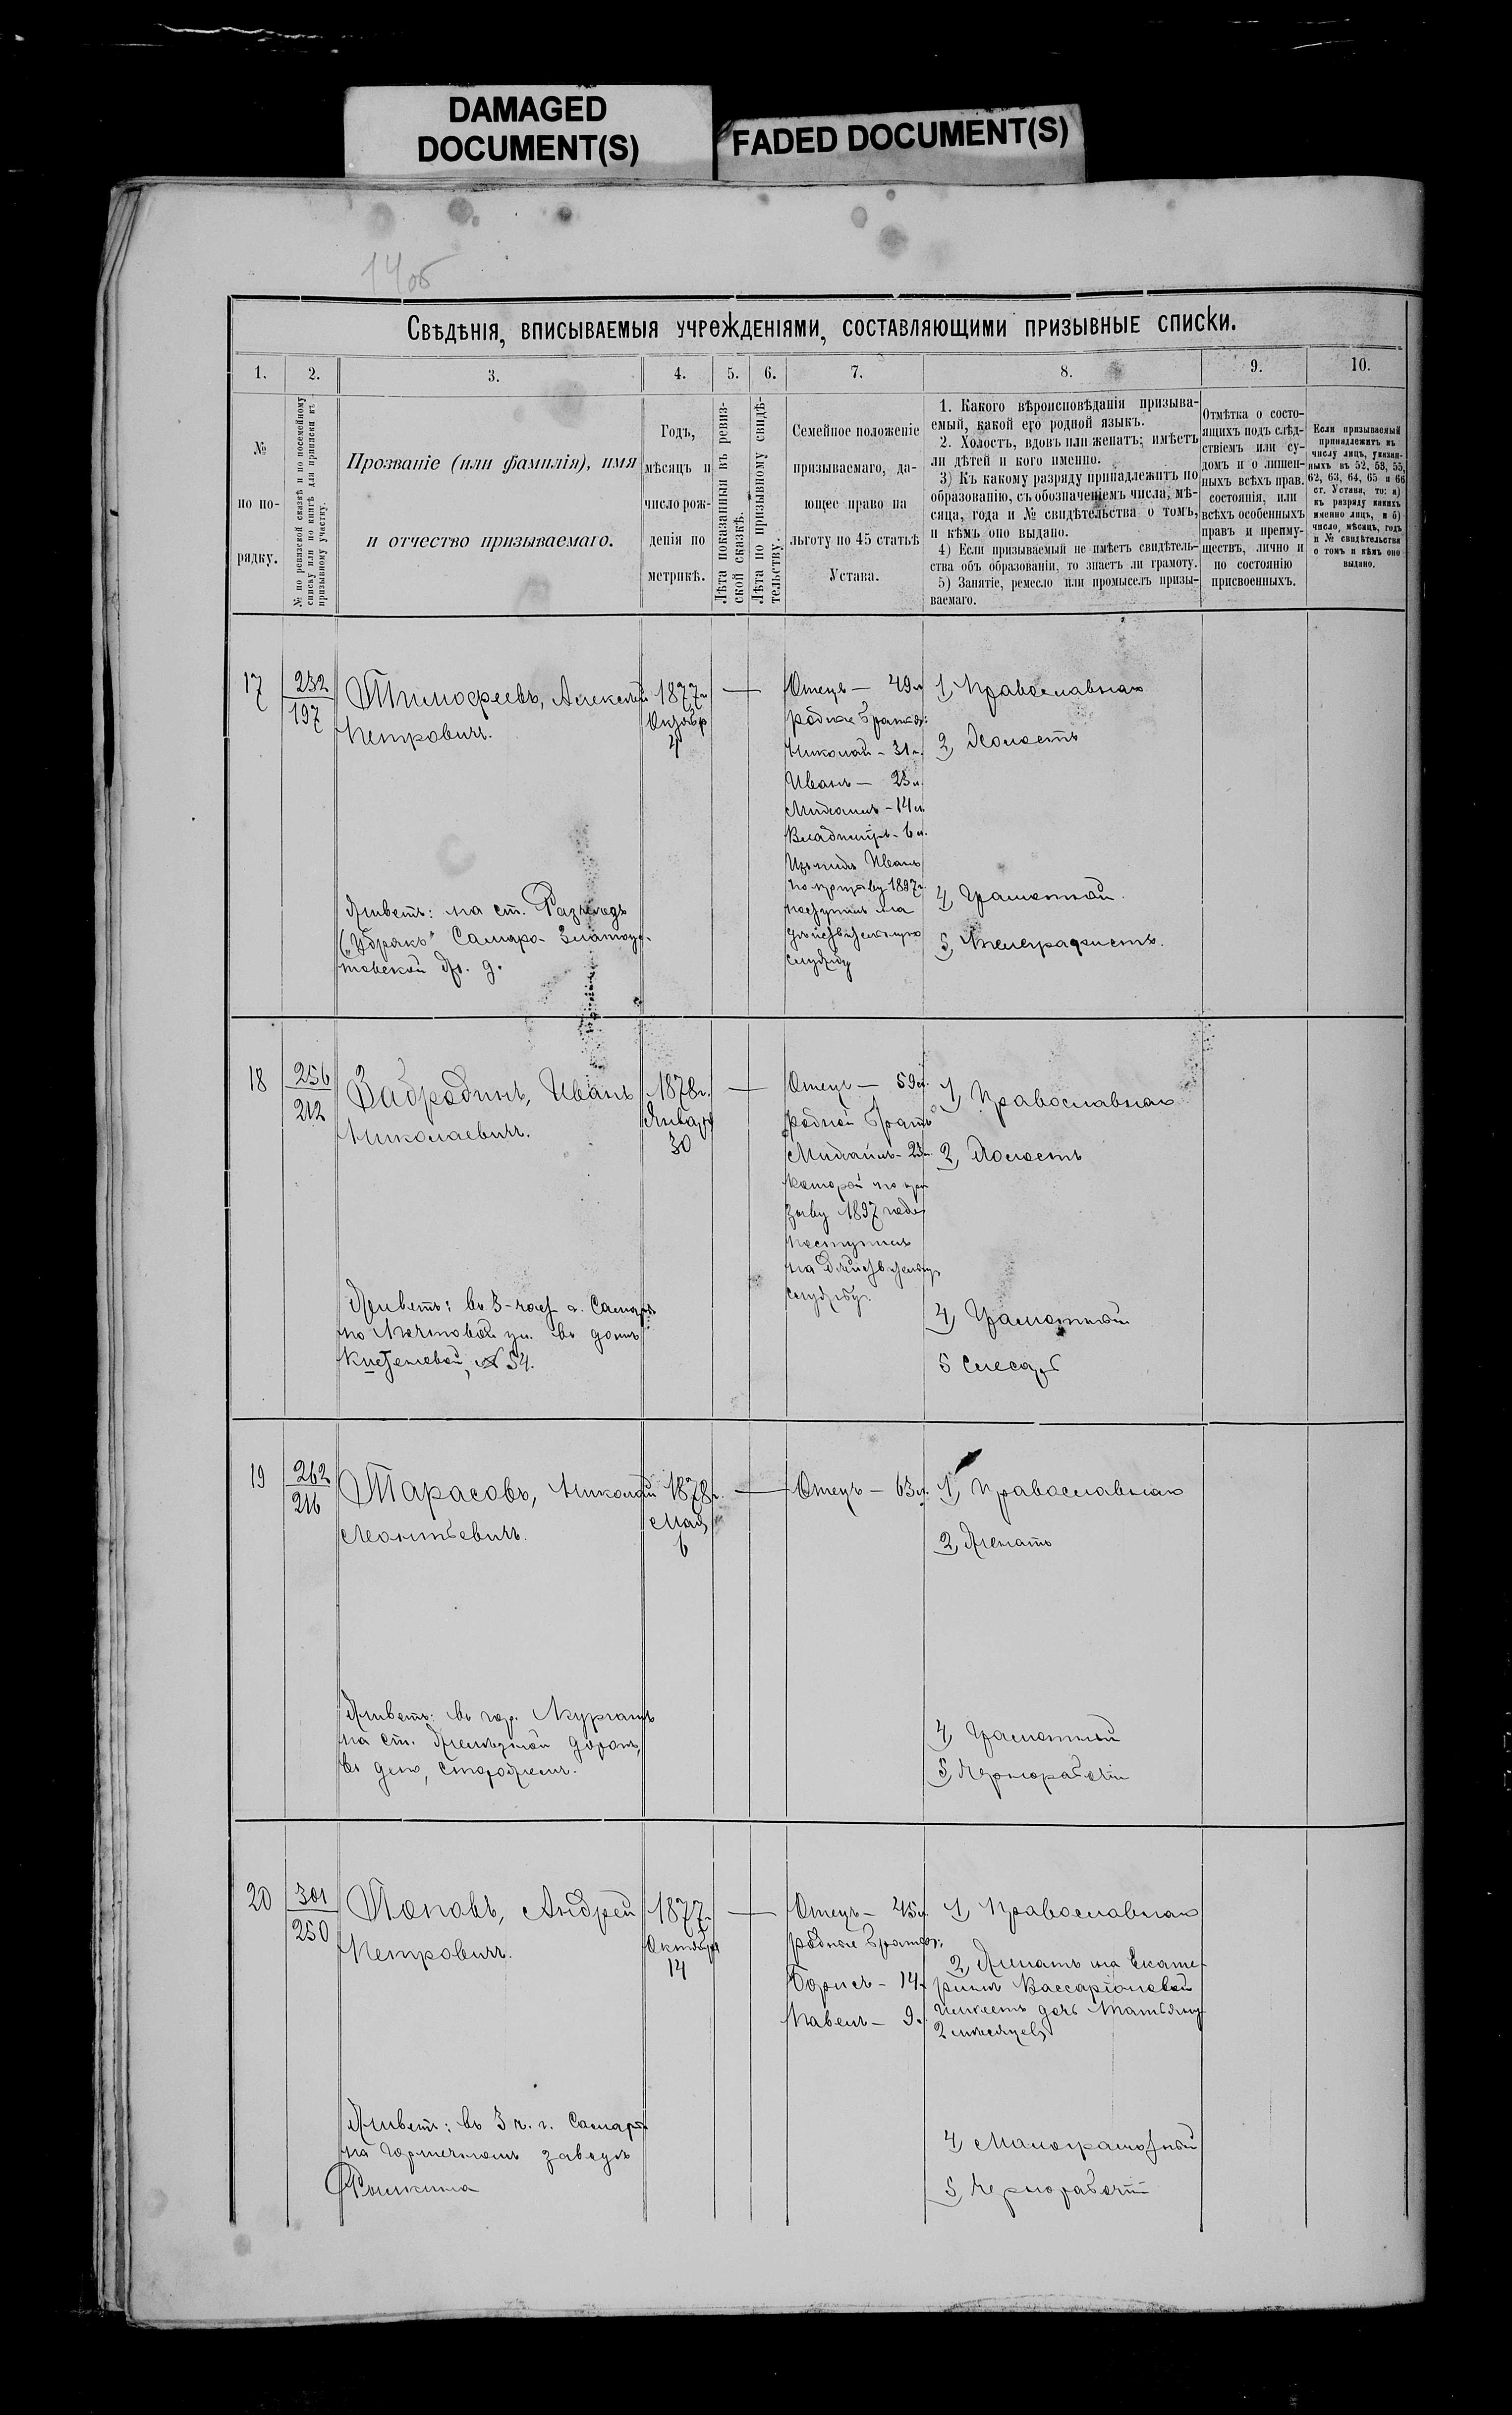 DAMAGED
DOCUMENT(S)
FADED DOCUMENT(S)
14об
Свѣдѣнія, вписываемыя учрежденіями, составляющими призывные списки.
1.
2.
3.
4.
5.
6.
7.
8.
9.
10.
№
по по-
рядку.
№ по ревизской сказкѣ и по посемейному
списку или по книгѣ для приписки къ
призывному участку.
Прозваніе (или фамилія), имя
и отчество призываемаго.
Годъ,
мѣсяцъ и
число рож-
денія по
метрикѣ.
Лѣта показанныя въ ревиз-
ской сказкѣ.
Лѣта по призывному свидѣ-
тельству.
Семейное положеніе
призываемаго, да-
ющее право на
льготу по 45 статьѣ
Устава.
1. Какого вѣроисповѣданія призыва-
емый, какой его родной языкъ.
2. Холостъ, вдовъ или женатъ; имѣетъ
ли дѣтей и кого именно.
3) Къ какому разряду принадлежитъ по
образованію, съ обозначеніемъ числа, мѣ-
сяца, года и № свидѣтельства о томъ,
и кѣмъ оно выдано.
4) Если призываемый не имѣетъ свидѣтель-
ства объ образованіи, то знаетъ ли грамоту.
5) Занятіе, ремесло или промыселъ призы-
ваемаго.
Отмѣтка о состо-
ящихъ подъ слѣд-
ствіемъ или су-
домъ и о лишен-
ныхъ всѣхъ прав.
состоянія, или
всѣхъ особенныхъ
правъ и преиму-
ществъ, лично и
по состоянію
присвоенныхъ.
Если призываемый
принадлежитъ къ
числу лицъ, указан-
ныхъ въ 52, 53, 55,
62, 63, 64, 65 и 66
ст. Устава, то: а)
къ разряду какихъ
именно лицъ, и б)
число, мѣсяцъ, годъ
и № свидѣтельства
о томъ и кѣмъ оно
выдано.
17
232
197
Тимофеевъ, Алексѣй
Петровичъ.
Живетъ: на ст. Разъездъ
„Уфракъ" Самаро-Златоус-
товской ж. д.
1877г
Октября
4
Отецъ — 49л
родные братья:
Николай — 31г.
Иванъ — 23г.
Михаилъ — 14л
Владиміръ — 6л.
Изъ нихъ Иванъ
по призыву 1897г.
поступилъ на
действительную
службу
1, Православнаго
2, Холостъ
4, Грамотной.
5, Телеграфистъ.
18
256
212
Забродинъ, Иванъ
Николаевичъ.
Живетъ: въ 3-част г. Самары
по Почтовой ул. въ доме
№ 54.
1878г.
Января
30
Отецъ — 59л.
родной братъ
Михаилъ — 23г.
которой по при
зыву 1897 года
поступилъ
на действительную
службу.
1, Православнаго
2, Холостъ
4, Грамотной
5 Слесарь
19
262
216
Тарасовъ, Николай
Леонтьевичъ.
Живетъ: въ гор. Кургане
на ст. Железной дороги,
въ депо, сторожемъ.
1878г.
Мая
6
Отецъ — 63г.
1, Православнаго
2, Женатъ
4, Грамотной
5, Чернорабочій
20
301
250
Поповъ, Андрей
Петровичъ.
Живетъ: въ 3 ч. г. Самары
на горшечномъ заводе
Фомкина
1877г
Октября
14
Отецъ — 45л.
родные братья:
Борисъ — 14л
Павелъ — 9л.
1, Православнаго
2, Женатъ на Екате-
рине Вассаріоновой
имеетъ дочь Татьяну
2 месяцевъ
4, Малограмотной
5, Чернорабочій